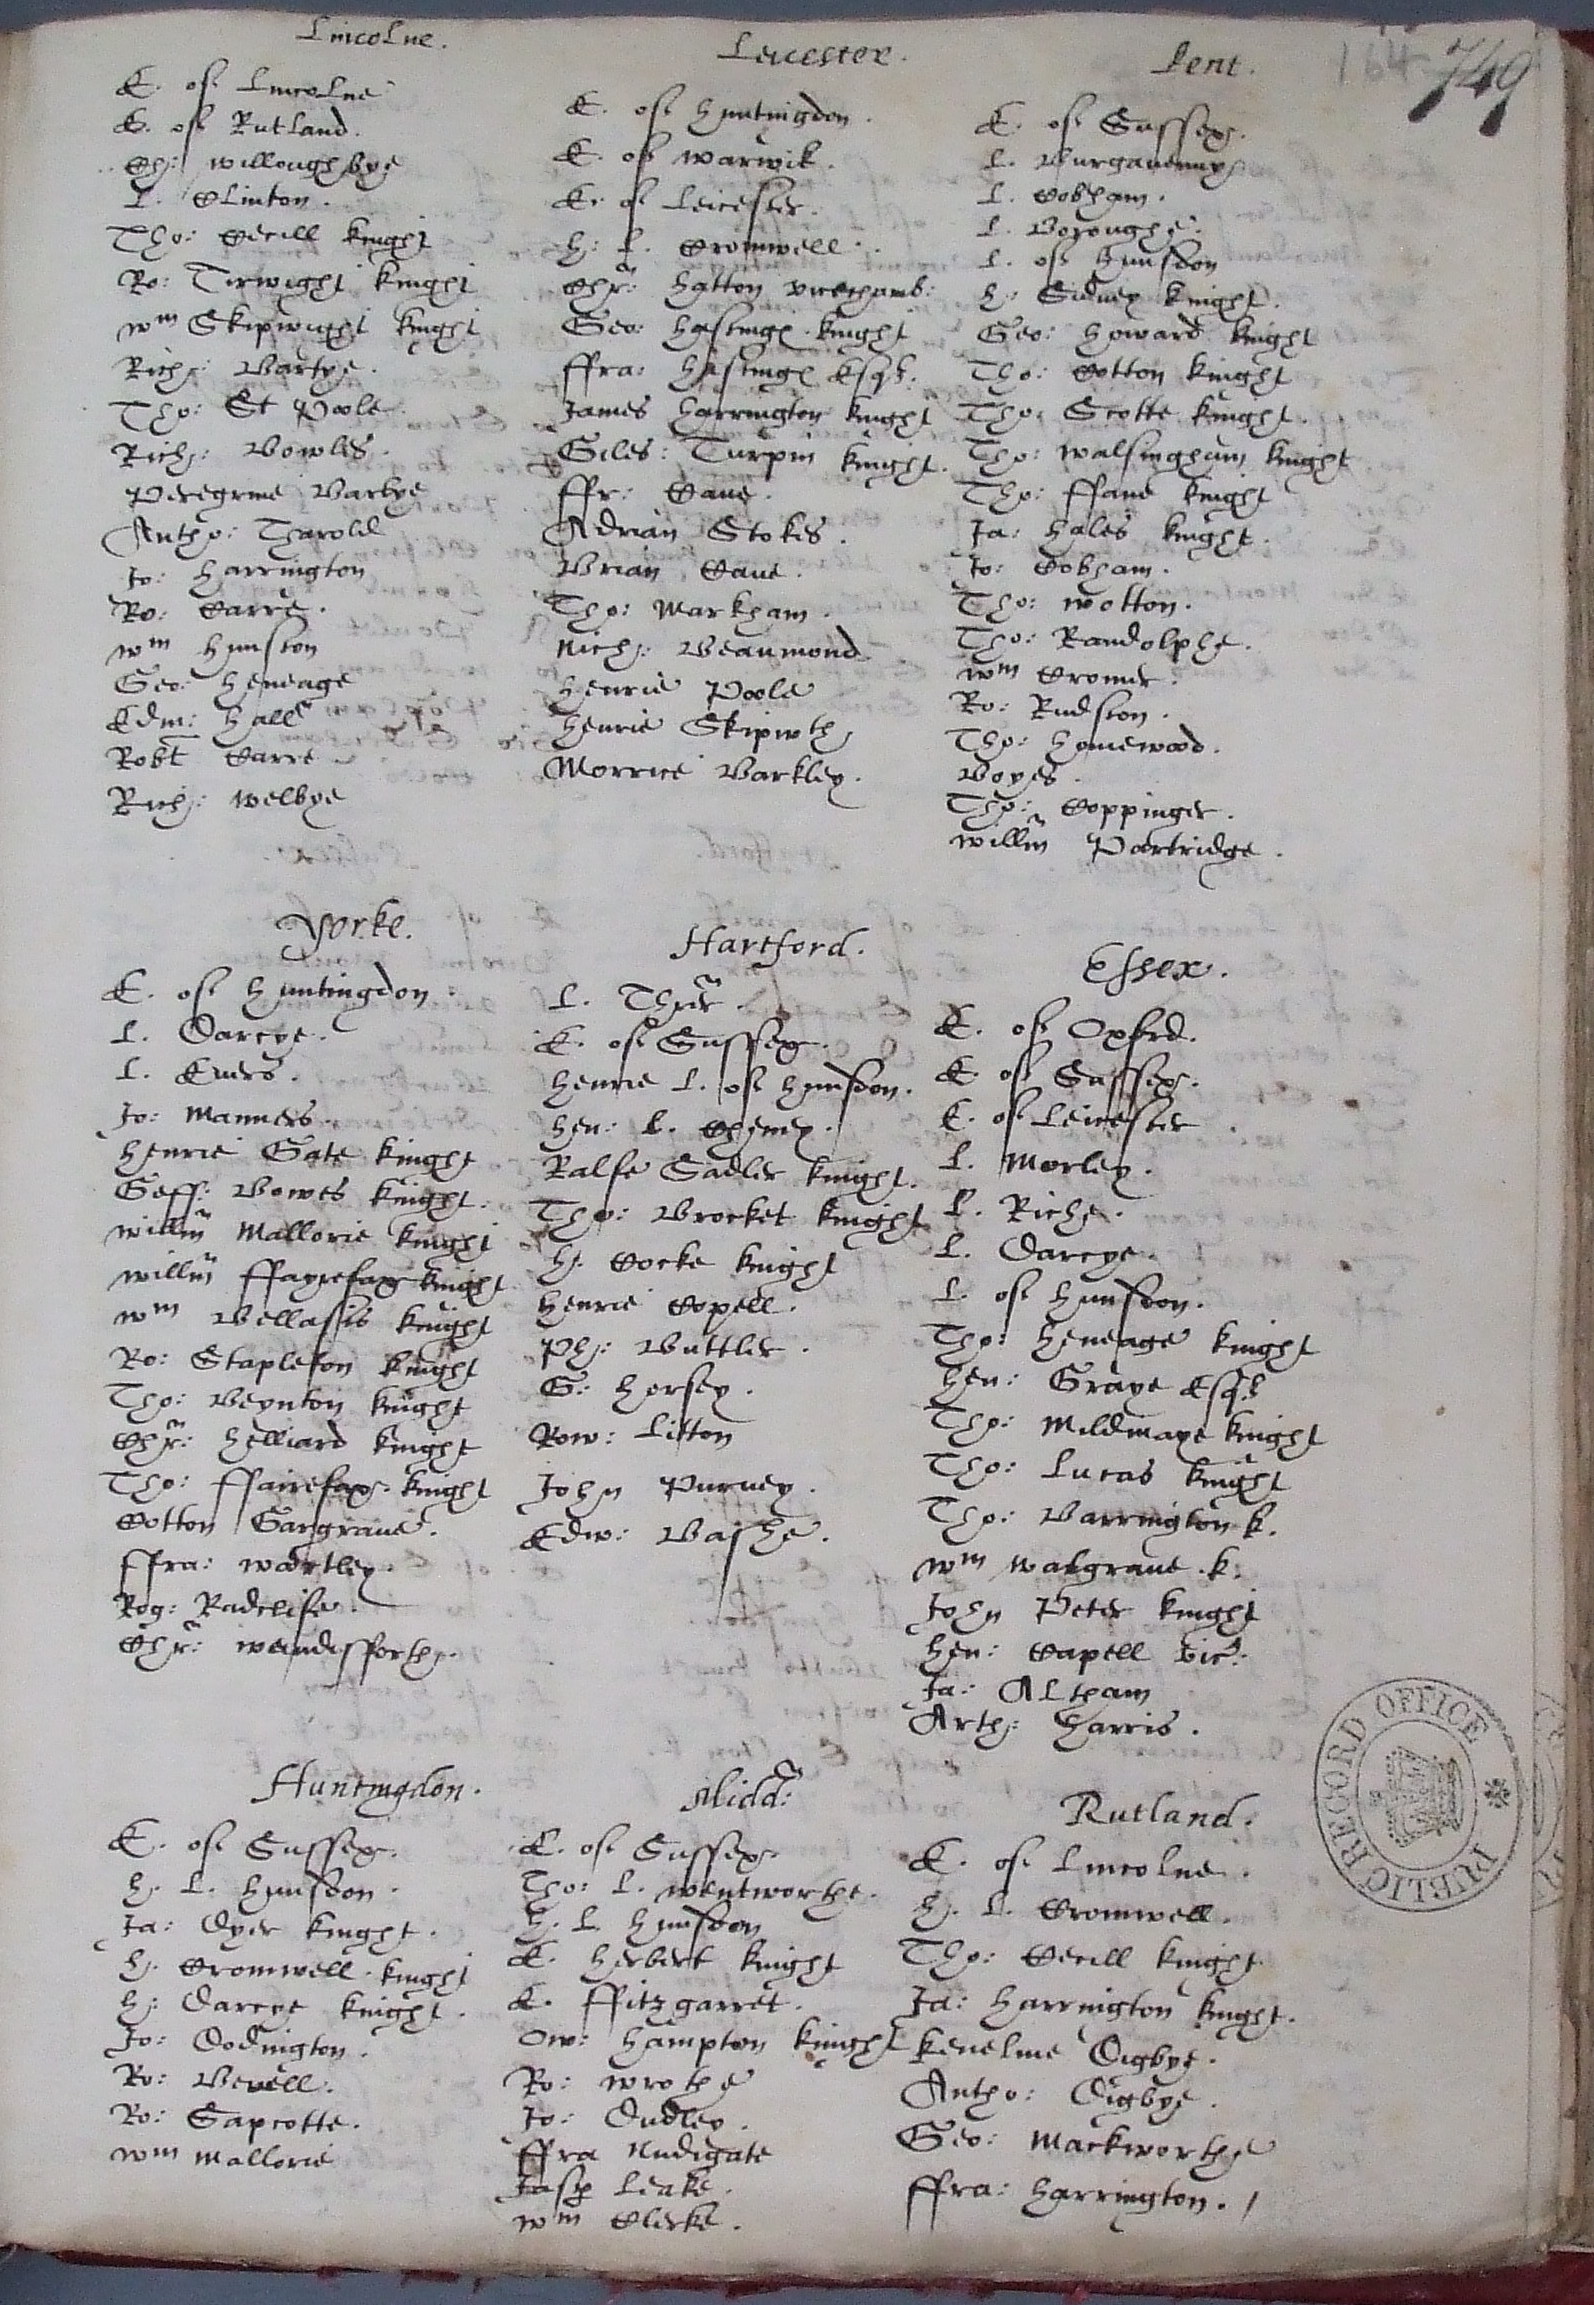 164 749
Lincolne.
E. of Lincolne
E. of Rutland.
Ch: willoughbye
L. Clinton.
Tho: Cecill knight
Ro: Tirwight knight
wm Skipwight knight
Rich: Bartye.
Tho: St Poole.
Rich: Bowles.
Peregrine Bartye
Antho: Tharold
Jo: Harrington
Ro: Carre.
wm Hunston
Geo: Heneage
Edm: Hall
Robt Carre
Rich: Welbye
Leicester.
E. of Huntingdon.
E. of warwik.
E. of Leicester.
H: L. Cromwell.
Chr: Hatton vicechamb:
Geo: Hastinge knight
ffra: Hastinge Esqr.
James Harrington knight
Giles: Turpin knight.
ffr: Caue.
Adrian Stokes.
Brian Caue.
Tho: Markham.
Nich: Beaumond
Henrie Poole
Henrie Skipwth
Morrice Barkley.
Kent.
E. of Sussex.
L. Burgauenny
L. Cobham.
L. Boroughe.
L. of Hunsdon
H: Sidney knight.
Geo: Howard knight
Tho: Cotton knight
Tho: Scotte knight.
Tho: walsingham knight
Tho: ffane knight
Ja: Hales knight.
Jo: Cobham.
Tho: wotton.
Tho: Randolphe.
wm Cromer.
Ro: Rudston.
Tho: Honiewood.
Boyes.
Tho: Coppinger.
willm Partridge.
Yorke.
E. of Huntingdon.
L. Darcye.
L. Euers.
Jo: Manners.
Henrie Gate knight
Geff: Bowes knight.
willm Mallorie knight
willm ffayrefax knight
wm Bellassis knight
Ro: Stapleton knight
Tho: Boynton knight
Chr: Helliard knight
Tho: ffairefax knight
Cotton Gargraue.
ffra: woortley.
Rog: Radclife.
Chr: wandesfforth.
Hartford.
L. Thr.
E. of Sussex.
Henrie L. of Hunsdon.
Hen: L. Cheney.
Ralfe Sadler knight.
Tho: Brocket knight
H: Cocke knight
Henrie Copell.
Ph: Buttler.
G: Horsey.
Row: Litton
John Puruey.
Edw: Bashe.
Essex.
E. of Oxford.
E. of Sussex.
E. of Leicester.
L. Morley.
L. Riche.
L. Darcye.
L. of Hunsdon.
Tho: Heneage knight
Hen: Graye Esqr
Tho: Mildmaye knight
Tho: Lucas knight
Tho: Barrington k.
wm walgraue .k.
John Peter knight
Hen: Capell vic:
Ja: Altham
Arth: Harris.
Huntingdon.
E. of Sussex.
H. L. Hunsdon.
Ja: Dyer knight.
H. Cromwell. knight
H: Darcye knight.
Jo: Dodington.
Ro: Bevell.
Ro: Sapcotte.
wm Mallorie
Midd:
E. of Sussex.
Tho: L. wentworthe.
H. L. Hunsdon
E. Herbert knight
E. ffitzgarret.
Ow: Hampton knight
Ro: wrothe
Jo: Dudley.
ffra Nudigate
Jasp Leake.
wm Clerke.
Rutland.
E. of Lincolne.
H. L. Cromwell.
Tho: Cecill knight
Ja: Harrington knight.
kenelme Digbye.
Antho: Digbye.
Geo: Mackworthe
ffra: Harrington. /
PUBLIC RECORD OFFICE